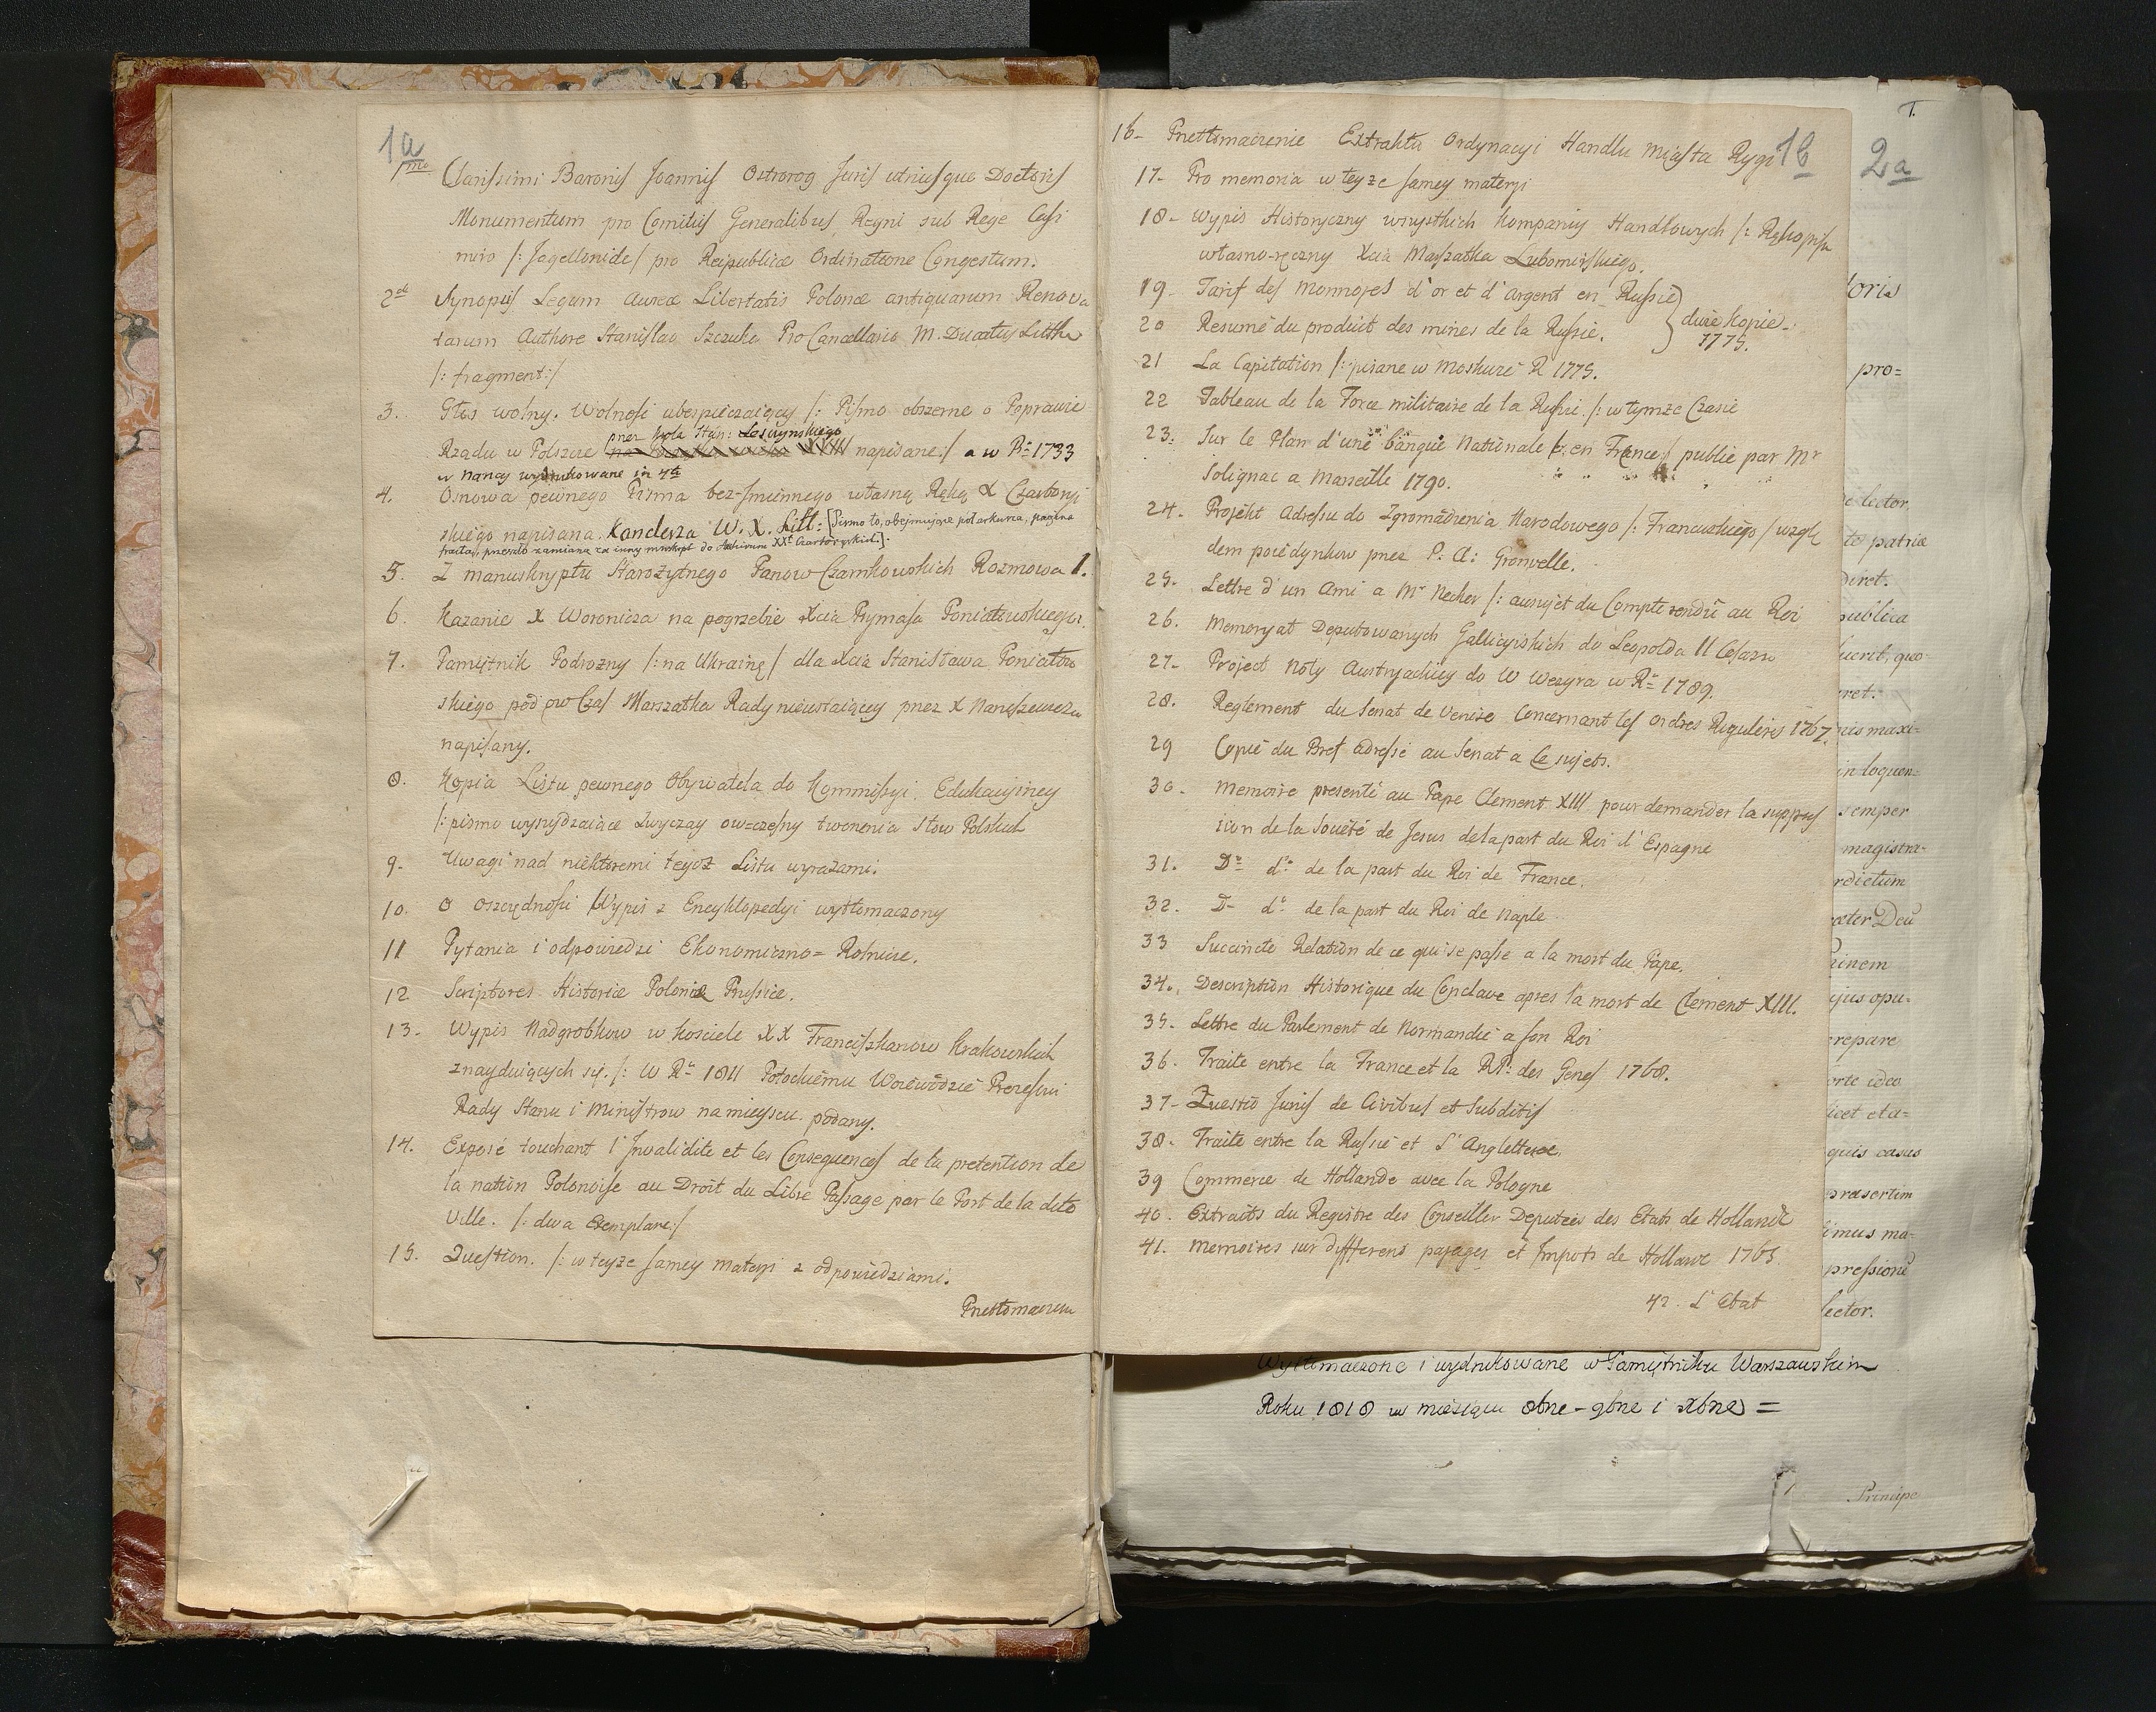 1a
1mo Clarissimi Baronis Joannis Ostrorog Juris utriusque Doctoris
Monumentum pro Comitiis Generalibus Regni sub Rege Casi
miro /: Jagellonide / pro Reipublicæ Ordinatione Congestum.
2do Synopsis Legum Aureæ Libertatis Polonæ antiquarum Renova
tarum Authore Stanislao Szczuka Pro Cancellario M. Ducatus Litthæ
/: fragment :/
3. Głos wolny. Wolności ubespieczaiący /: Pismo obszerne o Poprawie
przez Króla Stan: Leszczynskiego
Rządu w Polszcze XVIII napisane :/ a w Re 1733
w Nancy wydrukowane in 4to
4. Osnowa pewnego Pisma bez-Jmiennego własną Ręką X Czartory
skiego napisana. Kanclerza W. X. Litt: [Pismo to, obejmujące pół arkusza, pagina
fraita, przeszło zamianą za inny mnskrpt do Archivum XXt Czartoryskich].
5. Z manuskryptu Starożytnego Panow Czarnkowskich Rozmowa 1.
6. Kazanie X Woronicza na pogrzebie Xcia Prymasa Poniatowskiego.
7. Pamiętnik Podrozny /: na Ukrainę / dla Xcia Stanisława Poniatow
skiego pod ow Czas Marszałka Rady nieustaiącey przez X Naruszewicza
napisany.
8. Kopia Listu pewnego Obywatela do Kommissyi Edukacyiney
/: pismo wyszydzaiące Zwyczay ow=czesny tworzenia słow Polskich
9. Uwagi nad niektoremi tegoż Listu wyrazami.
10. O Oszczędności Wypis z Encyklopedyi wytłomaczony
11 Pytania i odpowiedzi Ekonomiczno= Rolnicze.
12 Scriptores Historiæ Poloniæ Prussicæ.
13. Wypis Nadgrobkow w kosciele XX Franciszkanow Krakowskich
znayduiących się. /: W Ru 1811 Potockiemu Woiewodzie Prezesowi
Rady Stanu i Ministrow na mieyscu podany.
14. Exposé touchant l'Invalidite et les Consequences de la pretention de
la nation Polonoise au Droit du Libre Passage par le Port de la dite
Ville. /: dwa Exemplare :/
15. Question. /: w teyze samey materyi z odpowiedziami.
Przetłomaczenie
16- Przetłomaczenie Extraktu Ordynacyi Handlu miasta Rygi 1b
17- Pro memoria w teyże samey materyi
18- Wypis Historyczny wszystkich Kompaniy Handlowych /: Rękopism
własno-ręczny Xcia Marszałka Lubomirskiego.
19. Tarif des Monnoyes d'or et d'Argent en Russie
20 Resumé du produit des mines de la Russie. } dwie kopie.
1775.
21 La Capitation /: pisane w Moskwie R 1775.
22 Tableau de la Force militaire de la Russie. /: w tymze Czasie
23. Sur le Plan d'une banque Nationale /: en France / publie par Mr
Solignac a Marseille 1790.
24. Projekt Adressu do Zgromadzenia Narodowego /: Francuskiego / wzglę
dem poiedynkow przez P. A: Gronvelle.
25. Lettre d'un Ami a Mr Necker /: au sujet du Compte rendu au Roi
26. Memoryał Deputowanych Gallicyiskich do Leopolda II Cesarza
27- Project Noty Austryackiey do W Wezyra w Re 1789.
28. Reglement du Senat de Venise Concernant les Ordres Reguliers 1767.
29 Copie du Bref adressé au Senat a Ce sujets.
30. Memoire presenté au Pape Clement XIII pour demander la suppres
sion de la Societé de Jesus de la part du Roi d'Espagne
31. Do do de la part du Roi de France.
32. Do do de la part du Roi de Naple
33 Succincte Relation de ce qui se passe a la mort du Pape.
34. Description Historique du Conclave apres la mort de Clement XIII.
35. Lettre du Parlement de Normandie a son Roi
36. Traite entre la France et la RP. des Genes 1768.
37- Quæstio Juris de Civibus et Subditis
38. Traite entre la Russie et l'Angleterre.
39 Commerce de Hollande avec la Pologne
40. Extraits du Registre des Conseiller Deputées des Etats de Hollande
41. Memoires sur differens passages et Impots de Hollande 1765.
42. L'Etat
Wytłomaczone i wydrukowane w Pamiętniku Warszawskim
Roku 1818 w miesiącu 8bre - 9bre i Xbre =
1.
2a
toris
pro=
lector
patria
diret.
publica
quo
eret.
nis maxi=
in loquen=
semper
magistra-
rdictum
Deu
ejus opu-
repare
orte idea
licet eta=
quis casus
præsertim
imus ma-
pressione
lector.
Principe